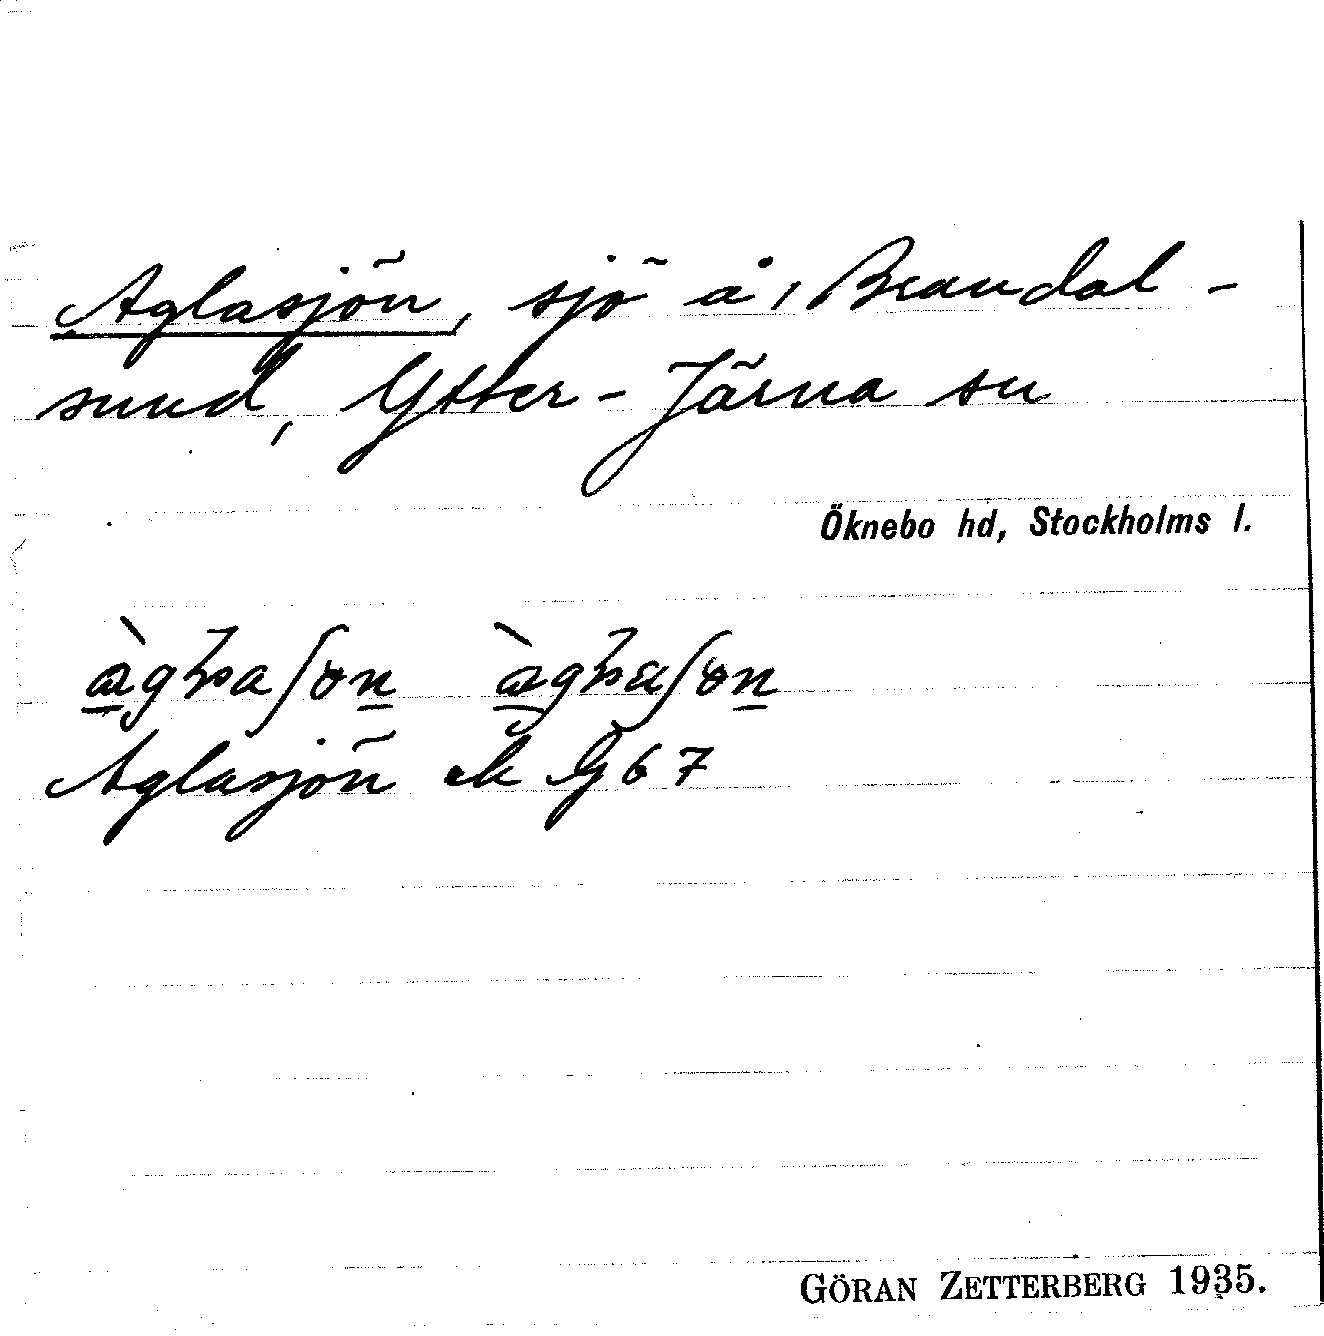 Aglasjön, sjö å, Brandal-
sund, Ytter-Järna sn
Öknebo hd, Stockholms l.
Aglasjön ek G 67
GÖRAN ZETTERBERG 1935.